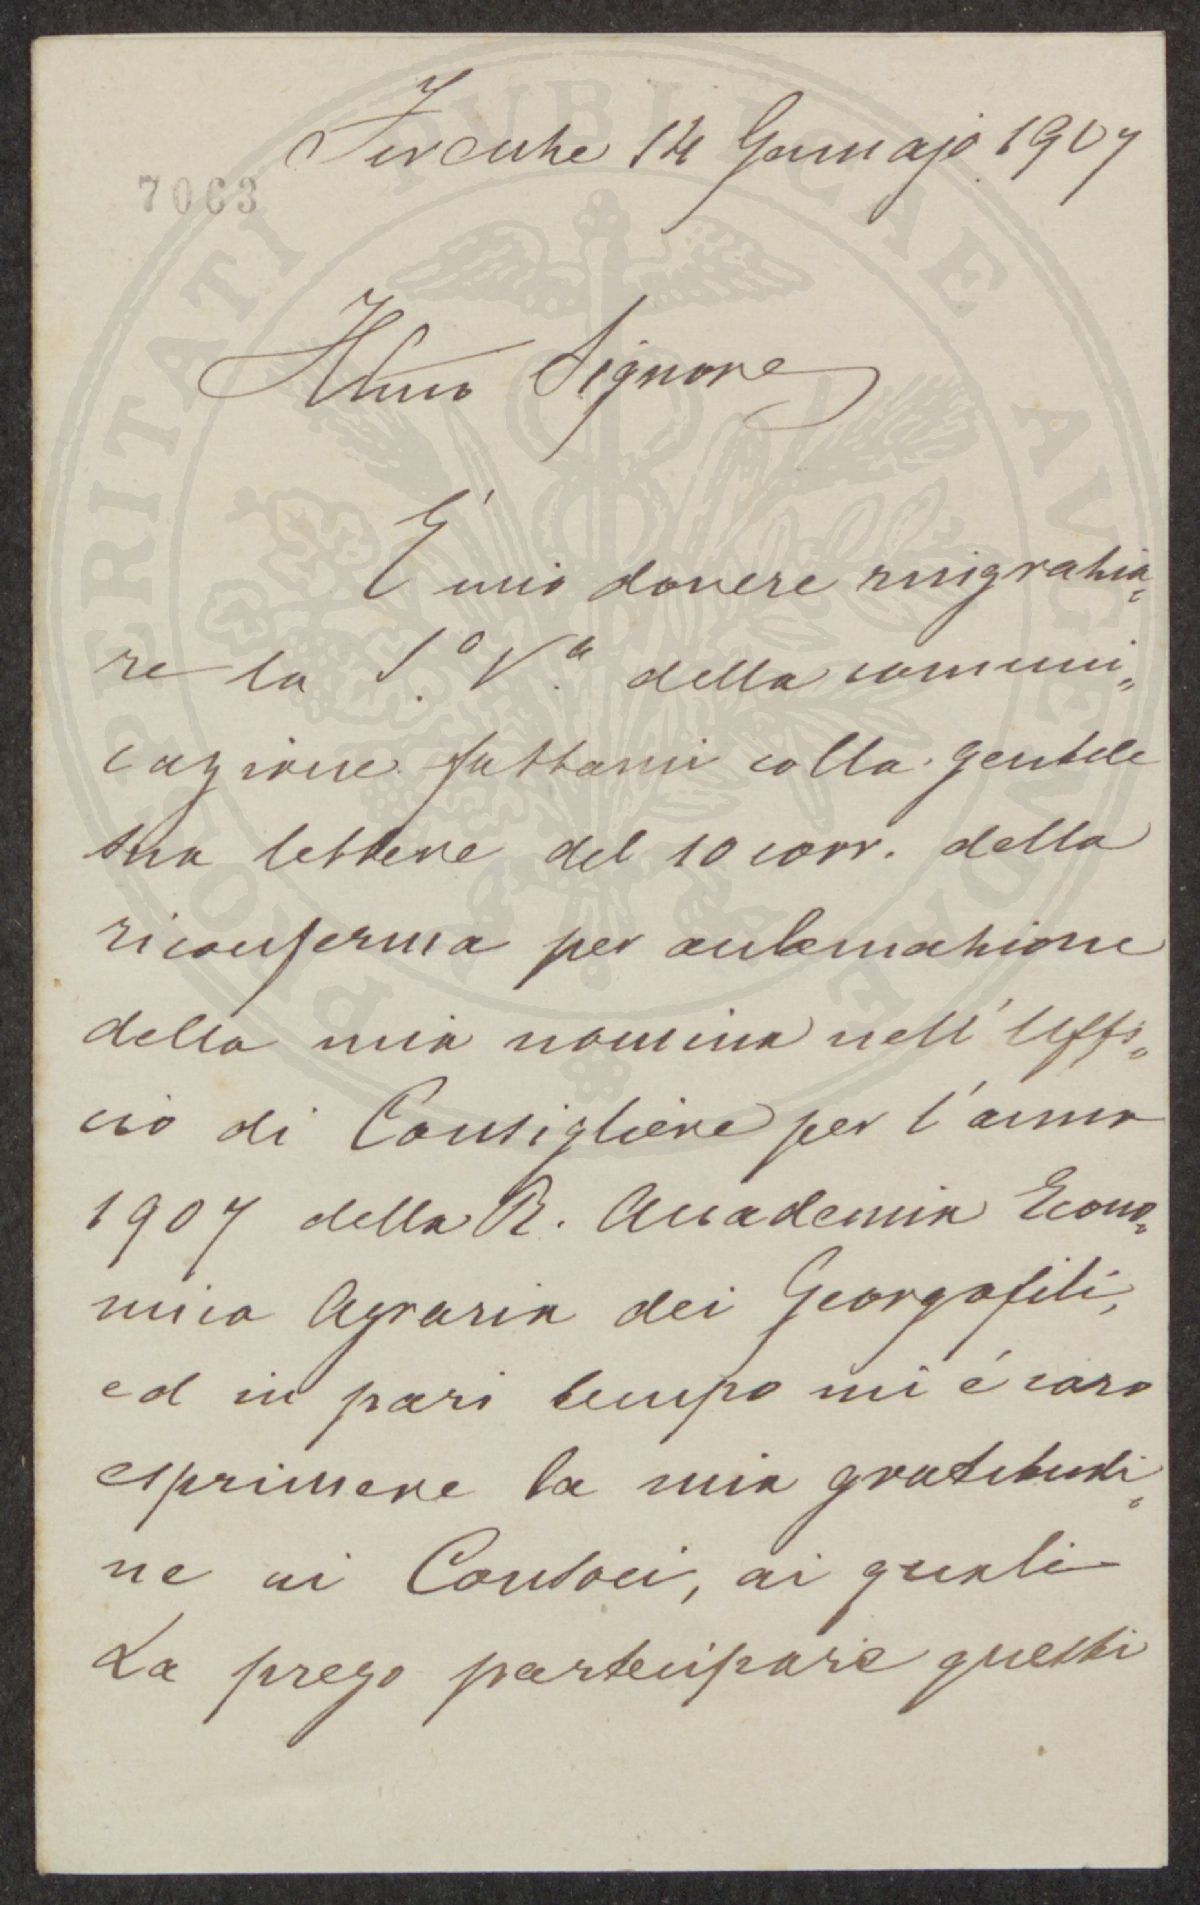 Firenze 14 Gennajo 1907
7063
Illmo Signore
É mio dovere ringrazia=
re la S.a V.a della comuni=
cazione fattami colla gentile
sua lettera del 10 corr. della
riconferma per acclamazione
della mia nomina nell'Uffi=
cio di Consigliere per l'anno
1907 della R. Accademia Econo=
mica Agraria dei Georgofili,
ed in pari tempo mi é caro
esprimere la mia gratitudi=
ne ai Consoci, ai quali
La prego partecipare questi
PROSPERITATI PUBLICAE AUGENDAE